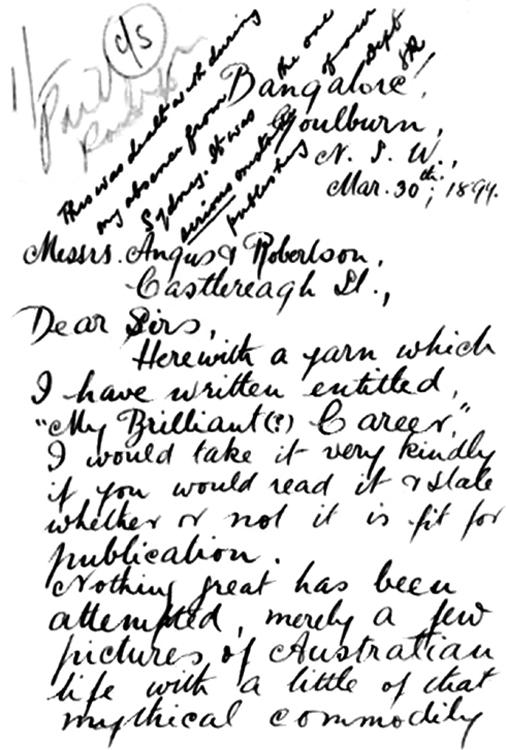 1/
C/S
Paid
This was dealt with during
my absence from
Sydney. It was the one
serious mistake of our
publishing Dept
GR
Bangalore,
Goulburn,
N. S. W.,
Mar. 30th; 1899.
Messrs. Angus & Robertson,
Castlereagh St.,
Dear Sirs,
Herewith a yarn which
I have written entitled,
"My Brilliant(?) Career,"
I would take it very kindly
if you would read it & state
whether or not it is fit for
publication.
Nothing great has been
attempted, merely a few
pictures of Australian
life with a little of that
mythical commodity